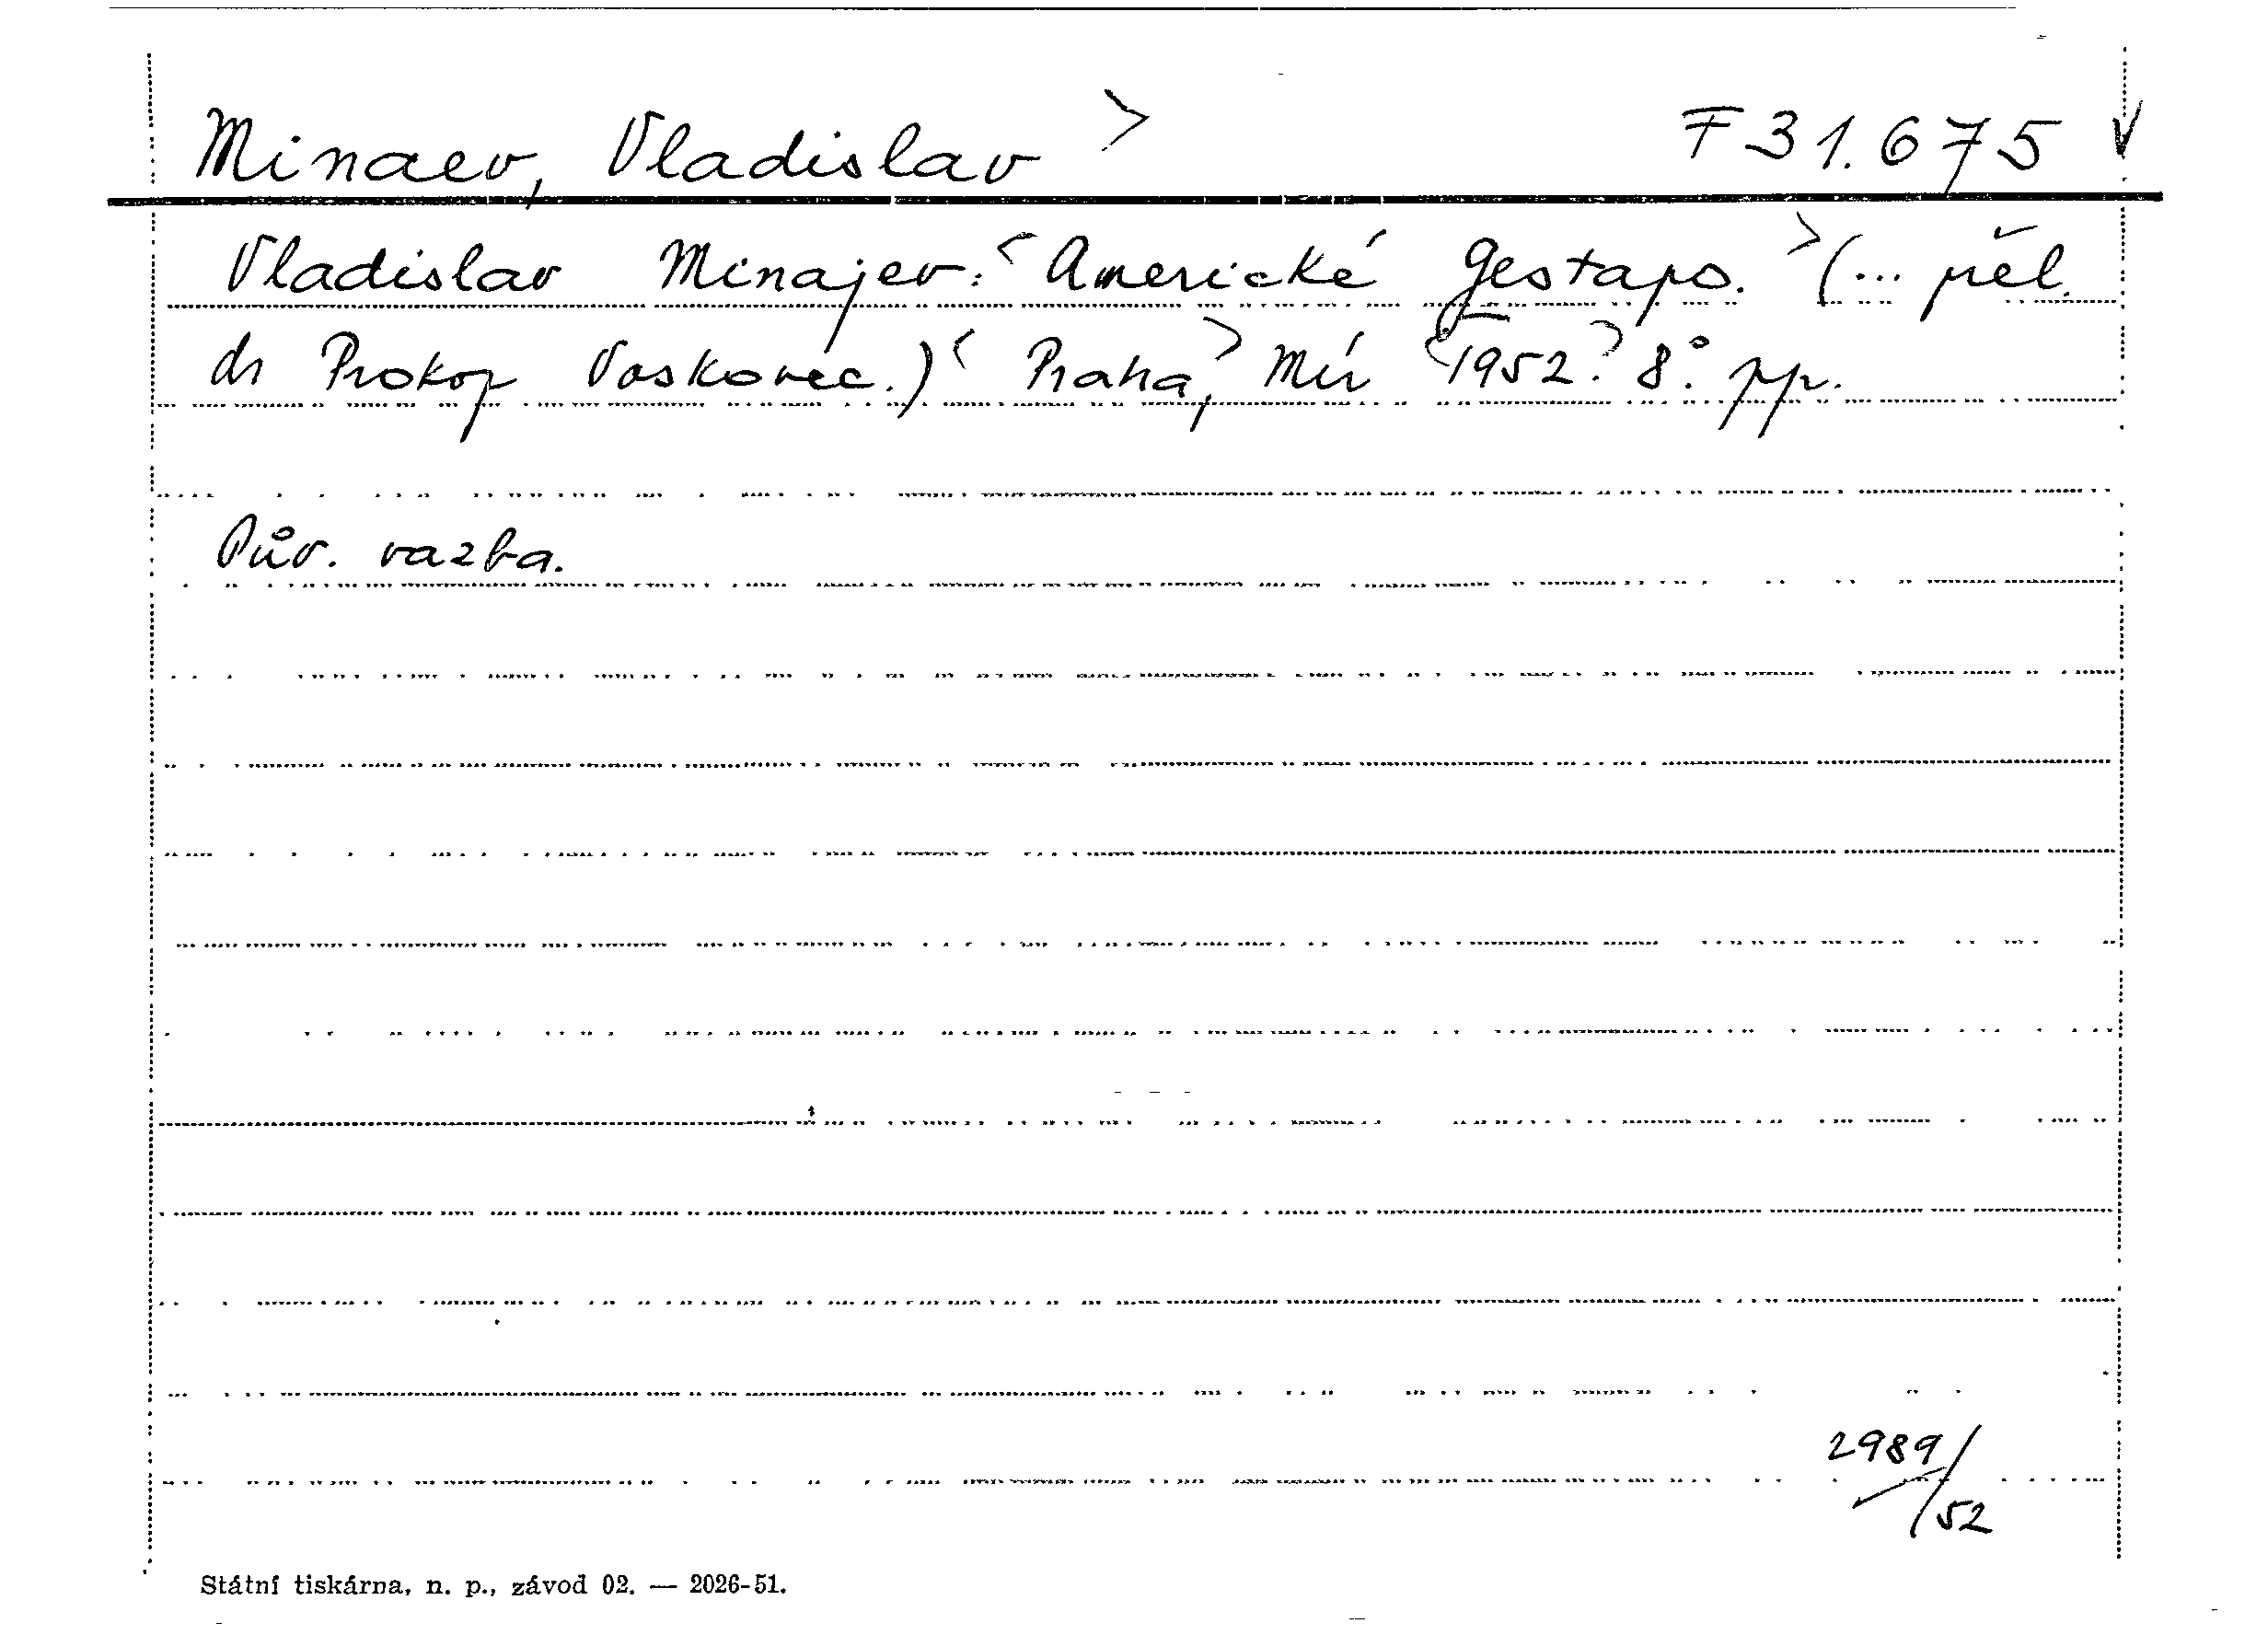 Minaev, Vladislav > F 31.675 V
Vladislav Minajev: < Americké Gestapo. > (... přel.
dr Prokop Voskovec.) < Praha, > Mír < 1952. > 8°. pp.
Pův. vazba.
2989/
52
Státní tiskárna, n. p., závod 02. — 2026-51.